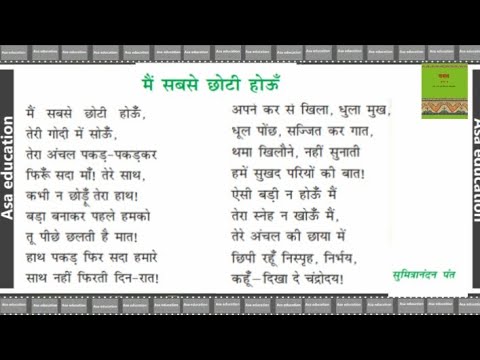 मैं सबसे छोटी होऊँ
मैं सबसे छोटी होऊँ,
तेरी गोदी में सोऊँ,
तेरा अंचल पकड़-पकड़कर
फिरूँ सदा माँ! तेरे साथ,
कभी न छोड़ूँ तेरा हाथ!
बड़ा बनाकर पहले हमको
तू पीछे छलती है मात!
हाथ पकड़ फिर सदा हमारे
साथ नहीं फिरती दिन-रात!
अपने कर से खिला, धुला मुख,
धूल पोंछ, सज्जित कर गात,
थमा खिलौने, नहीं सुनाती
हमें सुखद परियों की बात!
ऐसी बड़ी न होऊँ मैं
तेरा स्नेह न खोऊँ मैं,
तेरे अंचल की छाया में
छिपी रहूँ निस्पृह, निर्भय,
कहूँ–दिखा दे चंद्रोदय!
सुमित्रानंदन पंत
Asa education
Asa education